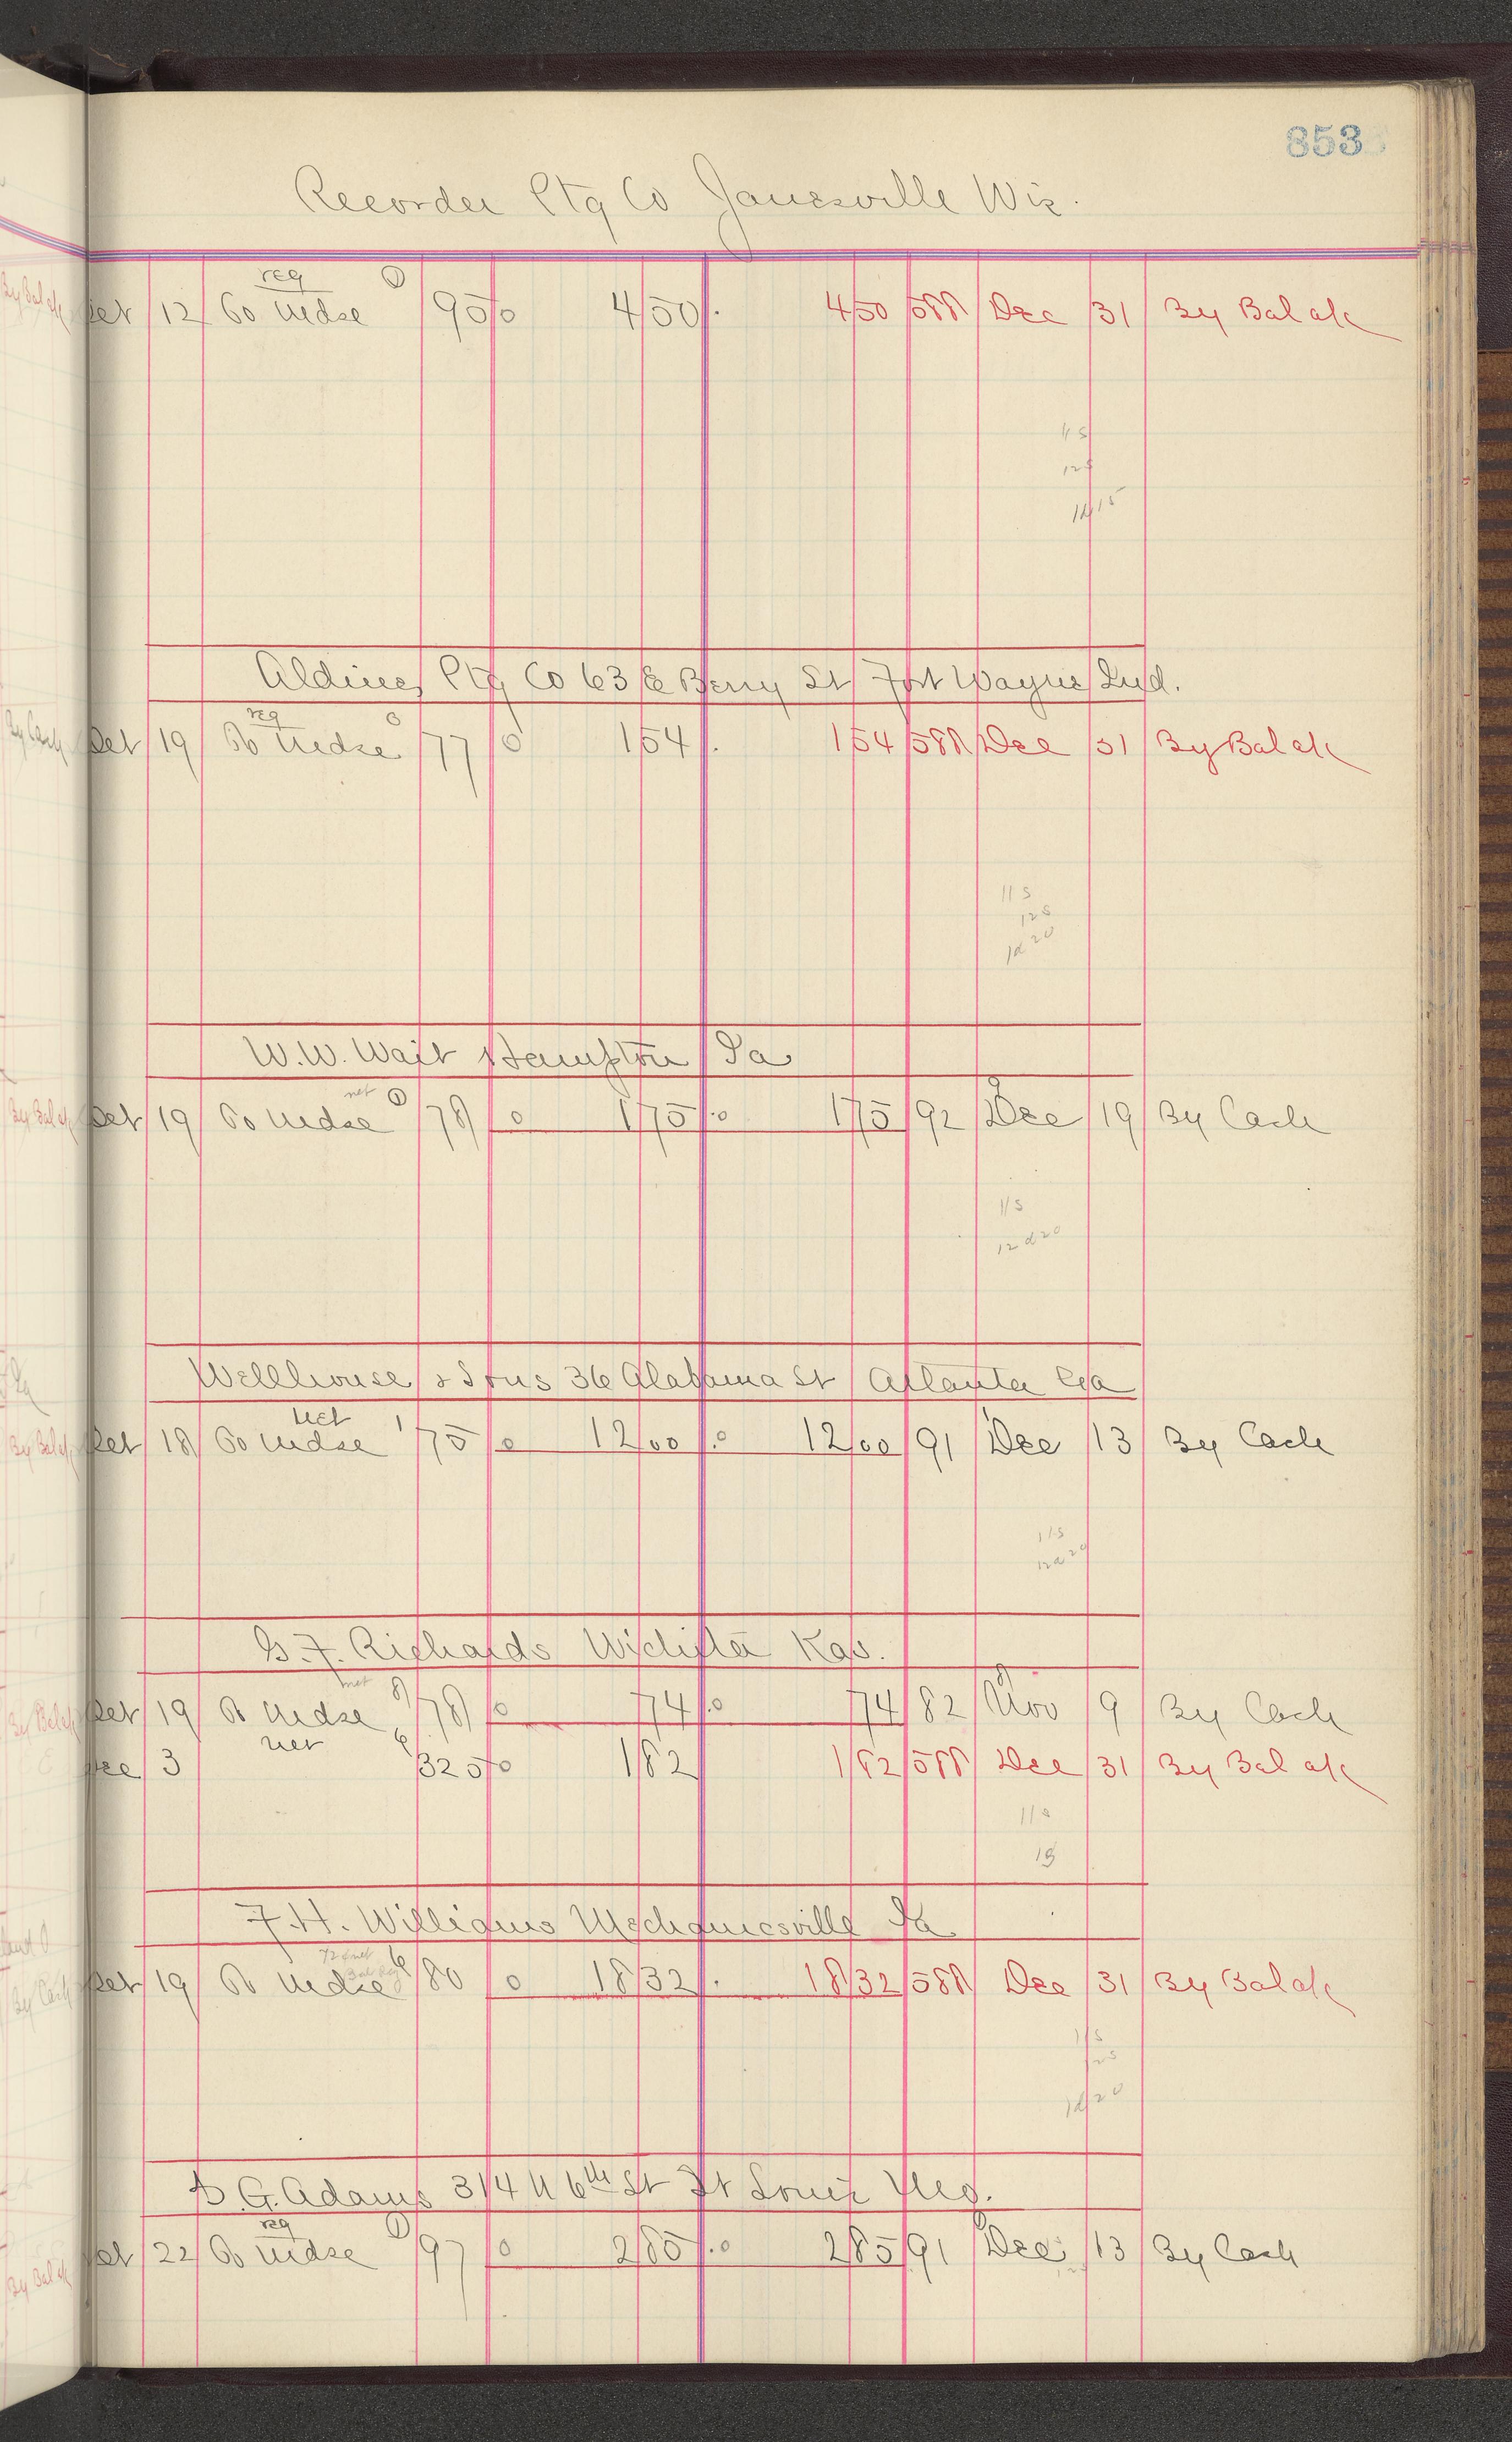 853
Recorder Ptg Co Janesville Wis.
reg 1
Oct 12 To Mdse 95 0 4 50 . 4 50 588 Dec 31 By Bal a/c
11 s
12 s
1 d 15
Aldine Ptg Co 63 E Berry St Fort Wayne Ind.
reg
Oct 19 To Mdse 77 0 1 54 . 1 54 588 Dec 31 By Bal a/c
11 s
12 s
1 d 20
W.W. Wait Hampton Ia
net 1
Oct 19 To Mdse 78 0 1 75 . 0 1 75 92 Dec 19 By Cash
11 s
12 d 20
Wellhouse & Sons 36 Alabama St Atlanta Ga
net 1
Oct 18 To Mdse 75 0 12 00 . 0 12 00 91 Dec 13 By Cash
11 s
12 d 20
G.F. Richards Wichita Kas.
net 8
Oct 19 To Mdse 78 0 74 . 0 74 82 Nov 9 By Cash
net 6
Dec 3 325 0 1 82 1 82 588 Dec 31 By Bal a/c
11 s
F.H. Williams Mechanicsville Ia
Oct 19 To Mdse 80 0 18 32 . 18 32 588 Dec 31 By Bal a/c
11 s
12 s
1 d 20
S.G. Adams 314 N 6th St St Louis Mo.
reg 1
Oct 22 To Mdse 97 0 2 85 . 0 2 85 91 Dec 13 By Cash